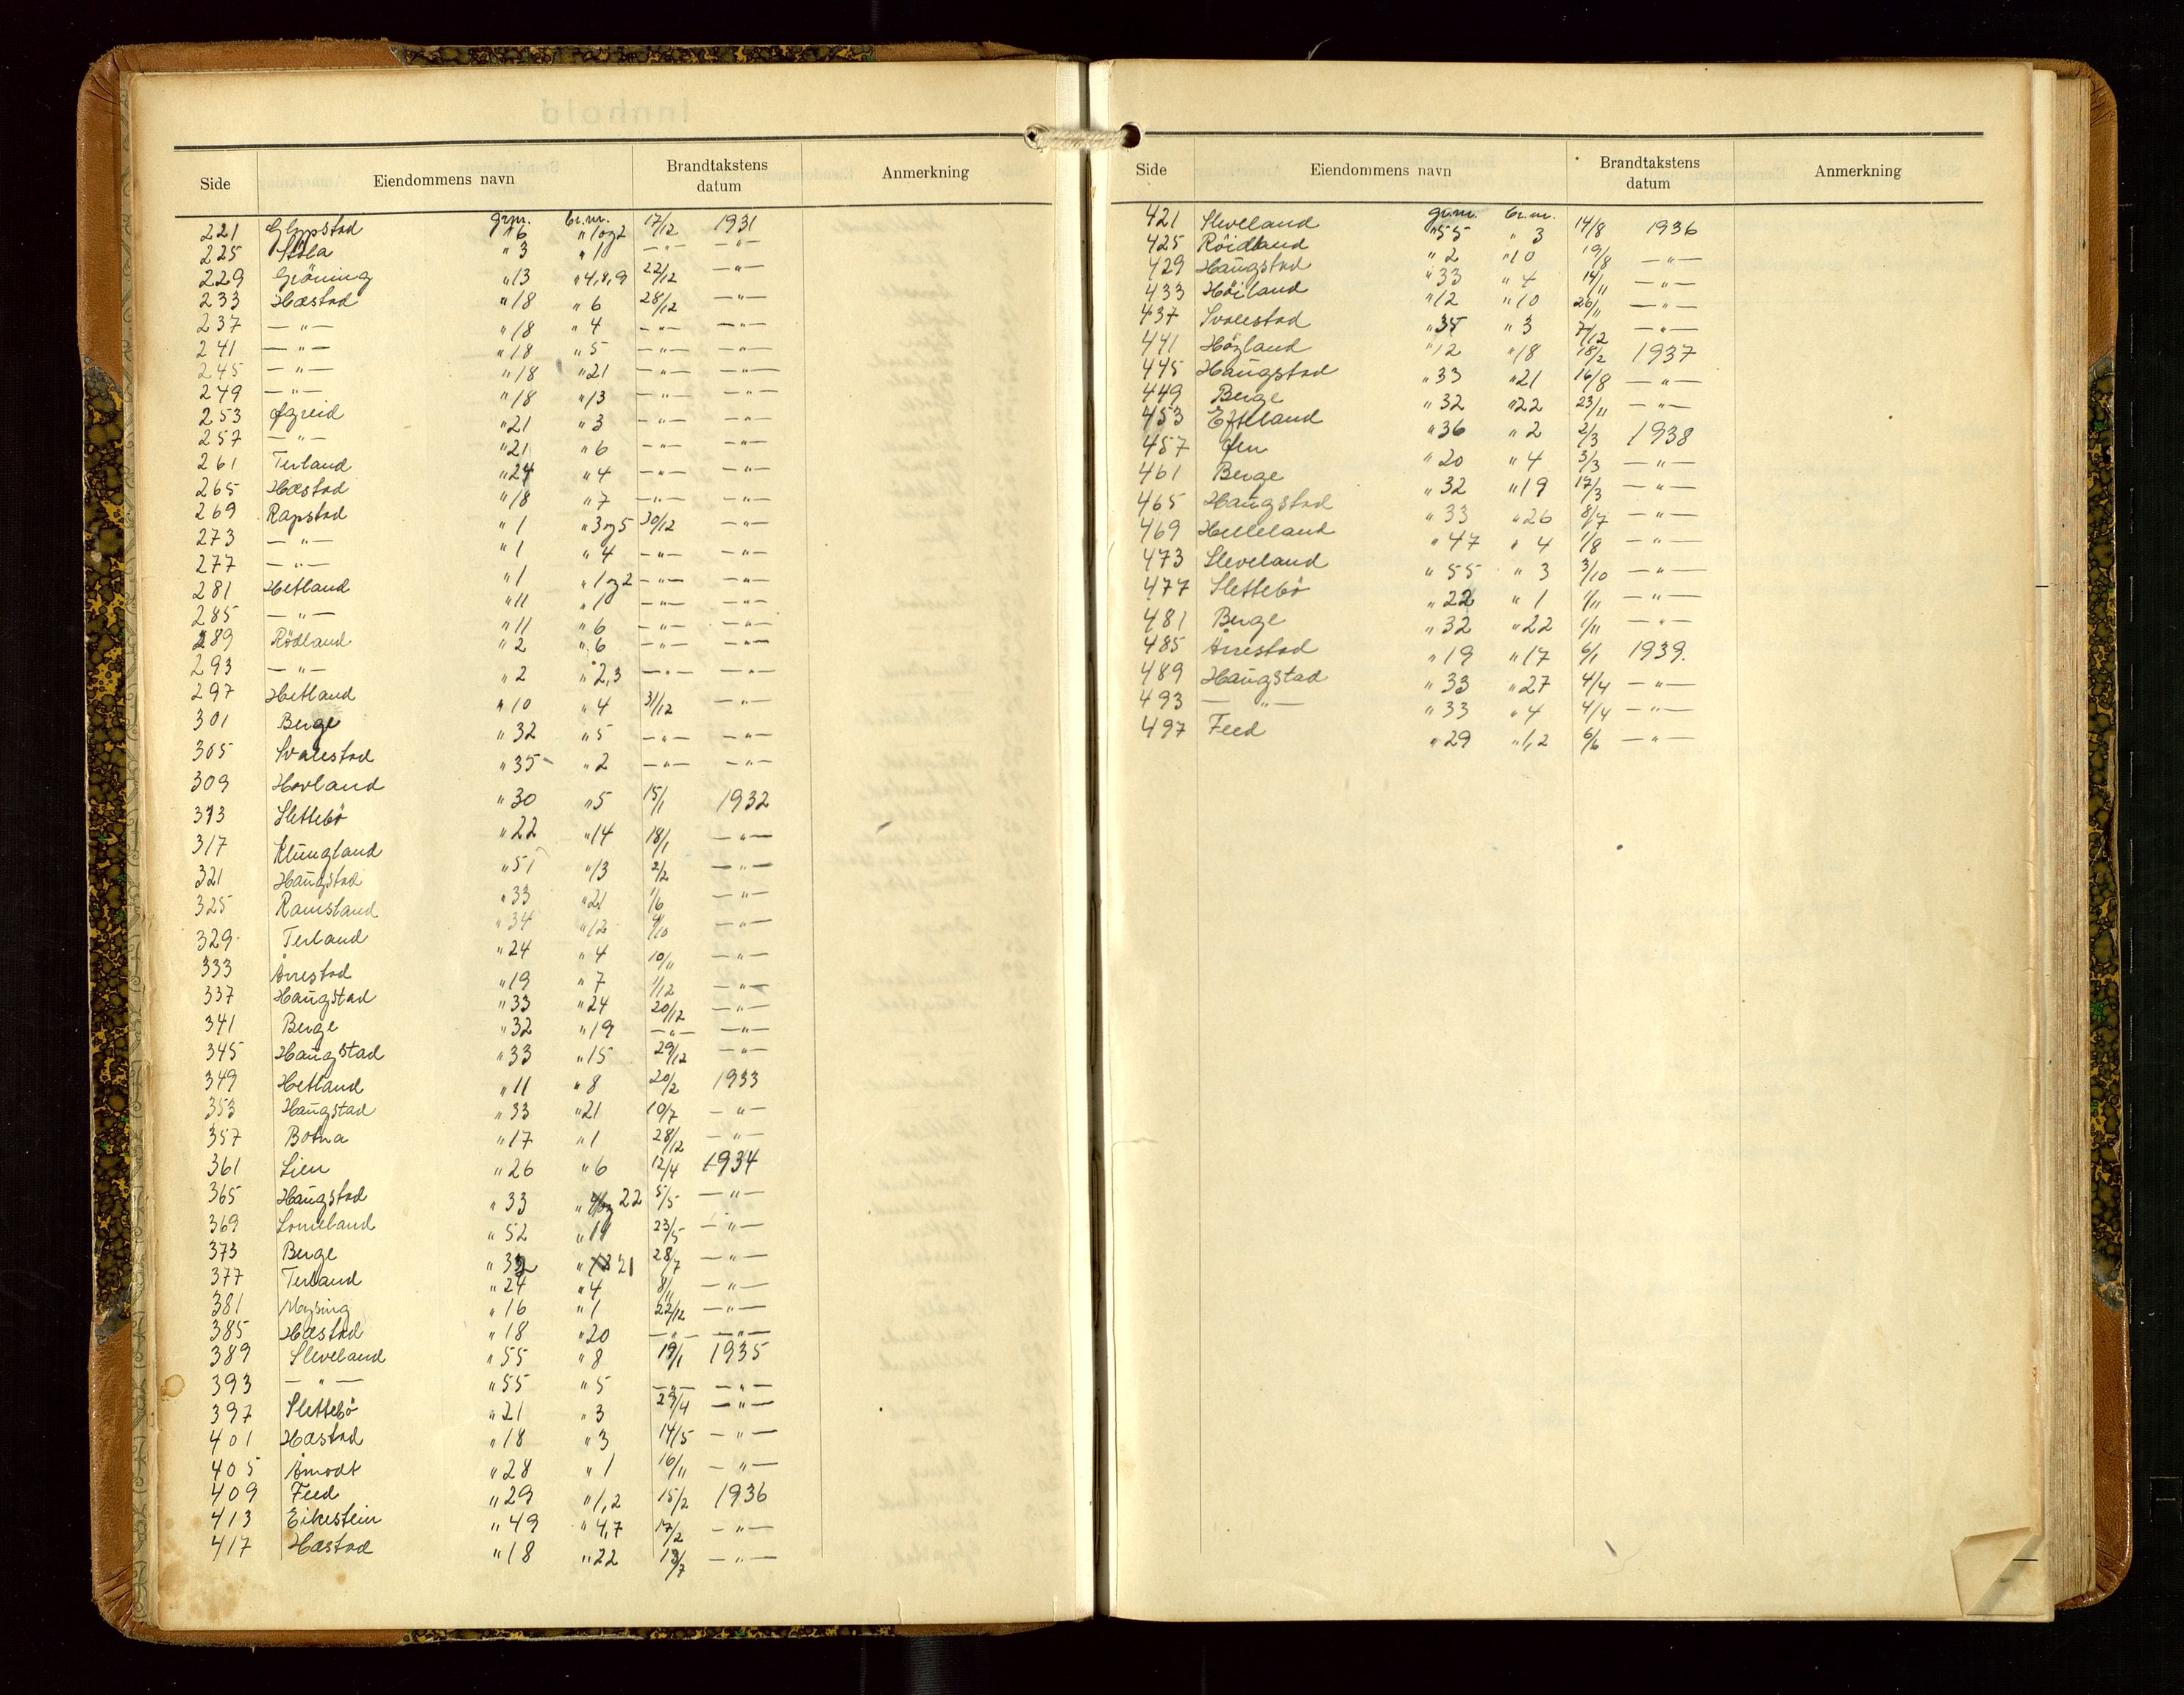 Side Eiendommens navn Brandtakstens datum Anmerkning
gnr. br.nr.
221 Glypstad " 6 " 1 og 2 17/12 1931
225 Stöla " 3 " 1 — " — — " —
229 Gröning " 13 " 4, 8, 9 22/12 — " —
233 Hæstad " 18 " 6 28/12 — " —
237 — " — " 18 " 4 — " — — " —
241 — " — " 18 " 5 — " — — " —
245 — " — " 18 " 21 — " — — " —
249 — " — " 18 " 13 — " — — " —
253 Øgreid " 21 " 3 — " — — " —
257 — " — " 21 " 6 — " — — " —
261 Terland " 24 " 4 — " — — " —
265 Hæstad " 18 " 7 — " — — " —
269 Rapstad " 1 " 3 og 5 30/12 — " —
273 — " — " 1 " 4 — " — — " —
277 — " — " 1 " 1 og 2 — " — — " —
281 Hetland " 11 " 1 — " — — " —
285 — " — " 11 " 6 — " — — " —
289 Rödland " 2 " 6 — " — — " —
293 — " — " 2 " 2,3 — " — — " —
297 Hetland " 10 " 4 31/12 — " —
301 Berge " 32 " 5 — " — — " —
305 Svalestad " 35 " 2 — " — — " —
309 Hovland " 30 " 5 15/1 1932
313 Slettebö " 22 " 14 18/1 — " —
317 Klungland " 51 " 13 2/2 — " —
321 Haugstad " 33 " 21 1/6 — " —
325 Ramsland " 34 " 12 4/10 — " —
329 Terland " 24 " 4 10/11 — " —
333 Årrestad " 19 " 7 1/12 — " —
337 Haugstad " 33 " 24 20/12 — " —
341 Berge " 32 " 19 — " — — " —
345 Haugstad " 33 " 15 29/12 — " —
349 Hetland " 11 " 8 20/2 1933
353 Haugstad " 33 " 21 10/7 — " —
357 Botna " 17 " 1 28/12 — " —
361 Lien " 26 " 6 12/4 1934
365 Haugstad " 33 " og 22 5/5 — " —
369 Lomeland " 52 " 11 23/5 — " —
373 Berge " 32 " 21 28/7 — " —
377 Terland " 24 " 4 8/11 — " —
381 Mysing " 16 " 1 22/12 — " —
385 Hæstad " 18 " 20 — " — — " —
389 Sleveland " 55 " 8 19/1 1935
393 — " — " 55 " 5 — " — — " —
397 Slettebö " 21 " 3 29/4 — " —
401 Hæstad " 18 " 3 14/5 — " —
405 Åmodt " 28 " 1 16/11 — " —
409 Feed " 29 " 1,2 15/2 1936
413 Eikestein " 49 " 4,7 17/2 — " —
417 Hæstad " 18 " 22 13/7 — " —
Side Eiendommens navn Brandtakstens datum Anmerkning
gnr. br.nr.
421 Sleveland " 55 " 3 14/8 1936
425 Röidland " 2 " 10 19/8 — " —
429 Haugstad " 33 " 4 14/11 — " —
433 Höiland " 12 " 10 26/11 — " —
437 Svalestad " 35 " 3 7/12 — " —
441 Höyland " 12 " 18 18/2 1937
445 Haugstad " 33 " 21 16/8 — " —
449 Berge " 32 " 22 23/11 — " —
453 Efteland " 36 " 2 2/3 1938
457 Øen " 20 " 4 3/3 — " —
461 Berge " 32 " 19 17/3 — " —
465 Haugstad " 33 " 26 8/7 — " —
469 Helleland " 47 " 4 1/8 — " —
473 Sleveland " 55 " 3 3/10 — " —
477 Slettebö " 22 " 1 1/11 — " —
481 Berge " 32 " 22 1/11 — " —
485 Årrestad " 19 " 17 6/1 1939.
489 Haugstad " 33 " 27 4/4 — " —
493 — " — " 33 " 4 4/4 — " —
497 Feed " 29 " 1,2 6/6 — " —